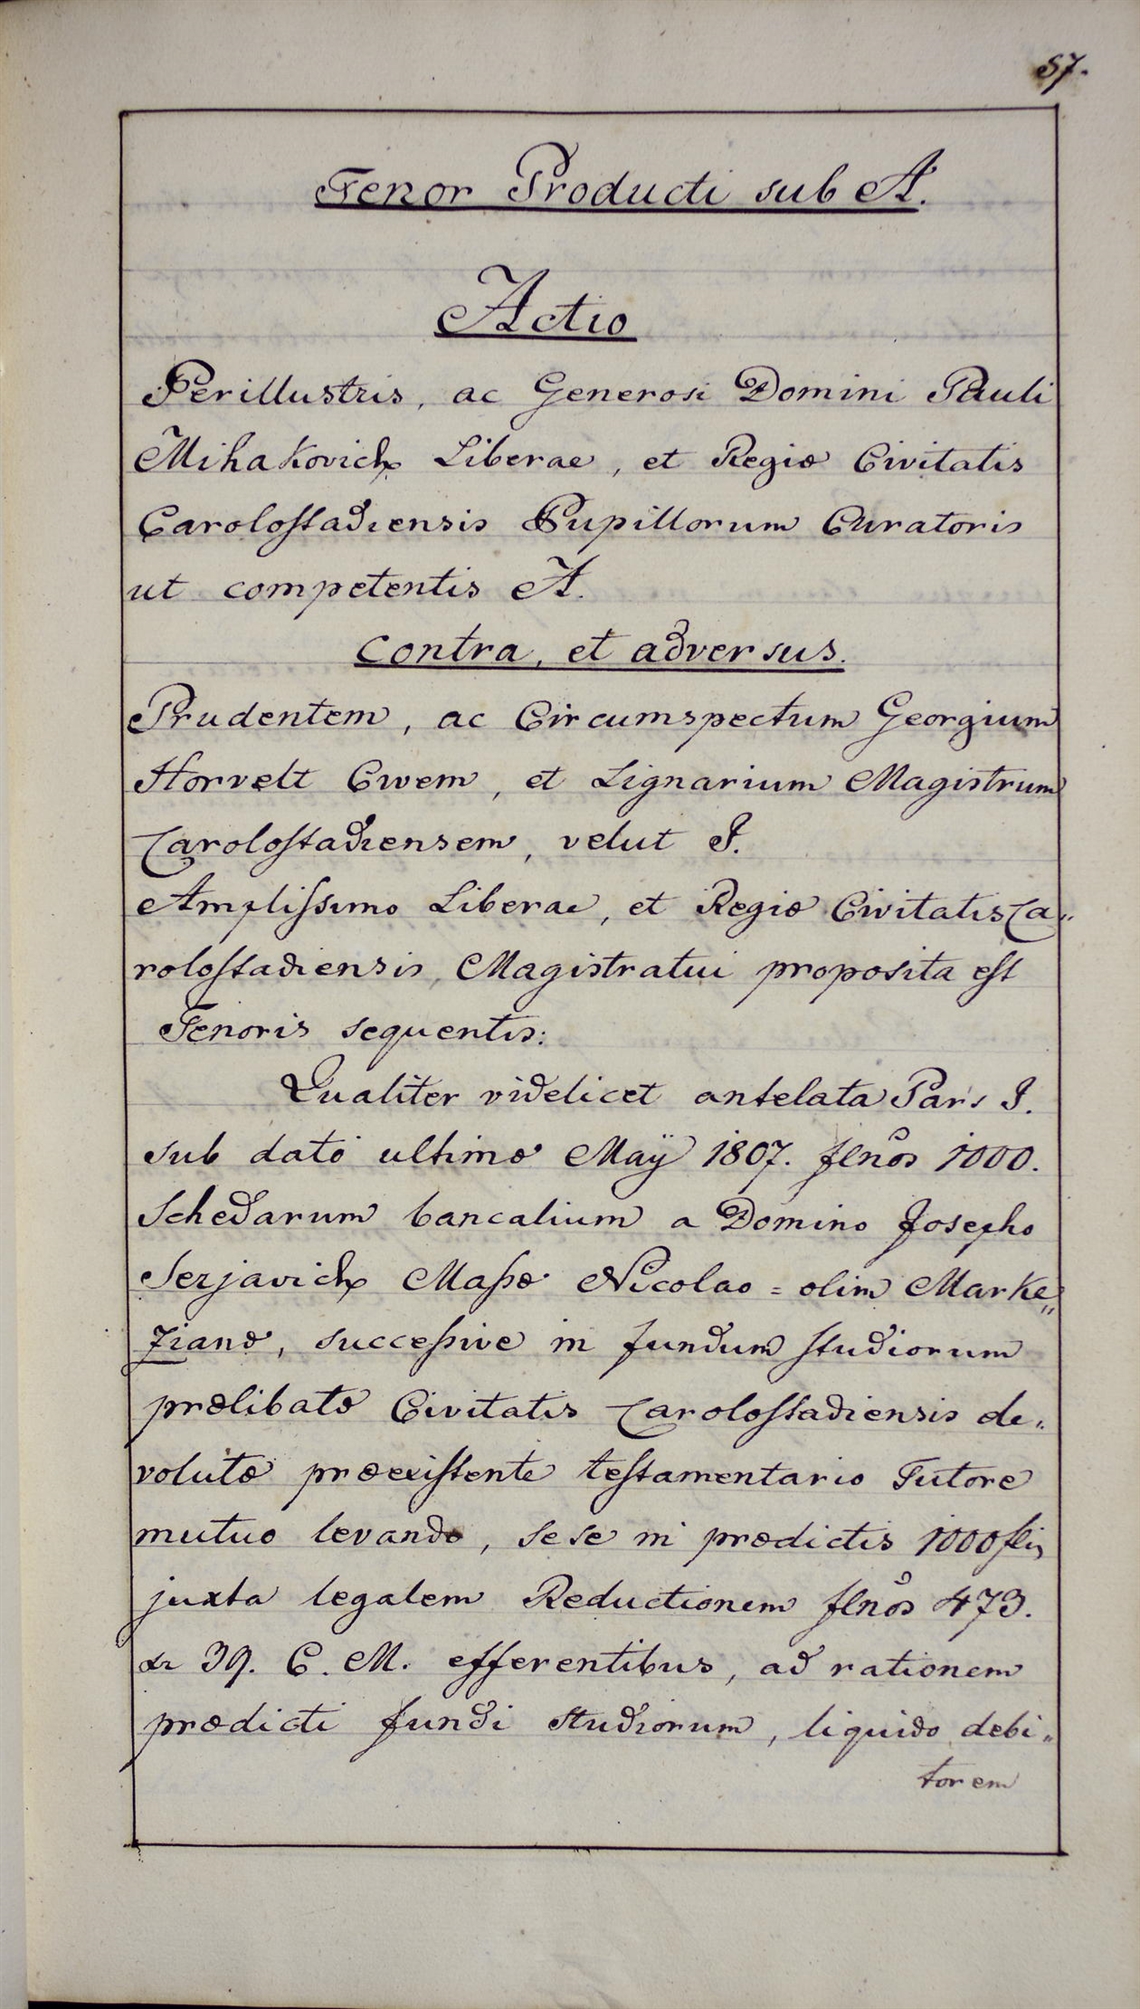 57.
Tenor Producti sub A.
Actio
Perillustris, ac Generosi Domini Pauli
Mihakovich Liberae, et Regiæ Civitatis
Carolostadiensis Pupillorum Curatoris
ut competentis A.
Contra, et adversus.
Prudentem, ac Circumspectum Georgium
Horvelt Civem, et Lignarium Magistrum
Carolostadiensem, velut I.
Amplissimo Liberae, et Regiæ Civitatis Ca„
rolostadiensis, Magistratui proposita est
Tenoris sequentis:
Qualiter videlicet antelata Pars I.
sub dato ultimæ Maÿ 1807. flnos 1000.
Schedarum bancalium a Domino Josepho
Serjavich Massæ Nicolao = olim Marke„
zianæ, successive in fundum studiorum
prælibatæ Civitatis Carolostadiensis de„
volutæ præexistente testamentario Tutore
mutuo levando, sese in prædictis 1000 flis
juxta legalem Reductionem flnos 473.
xr 39. C. M. efferentibus, ad rationem
prædicti fundi studiorum, liquido debi„
torem